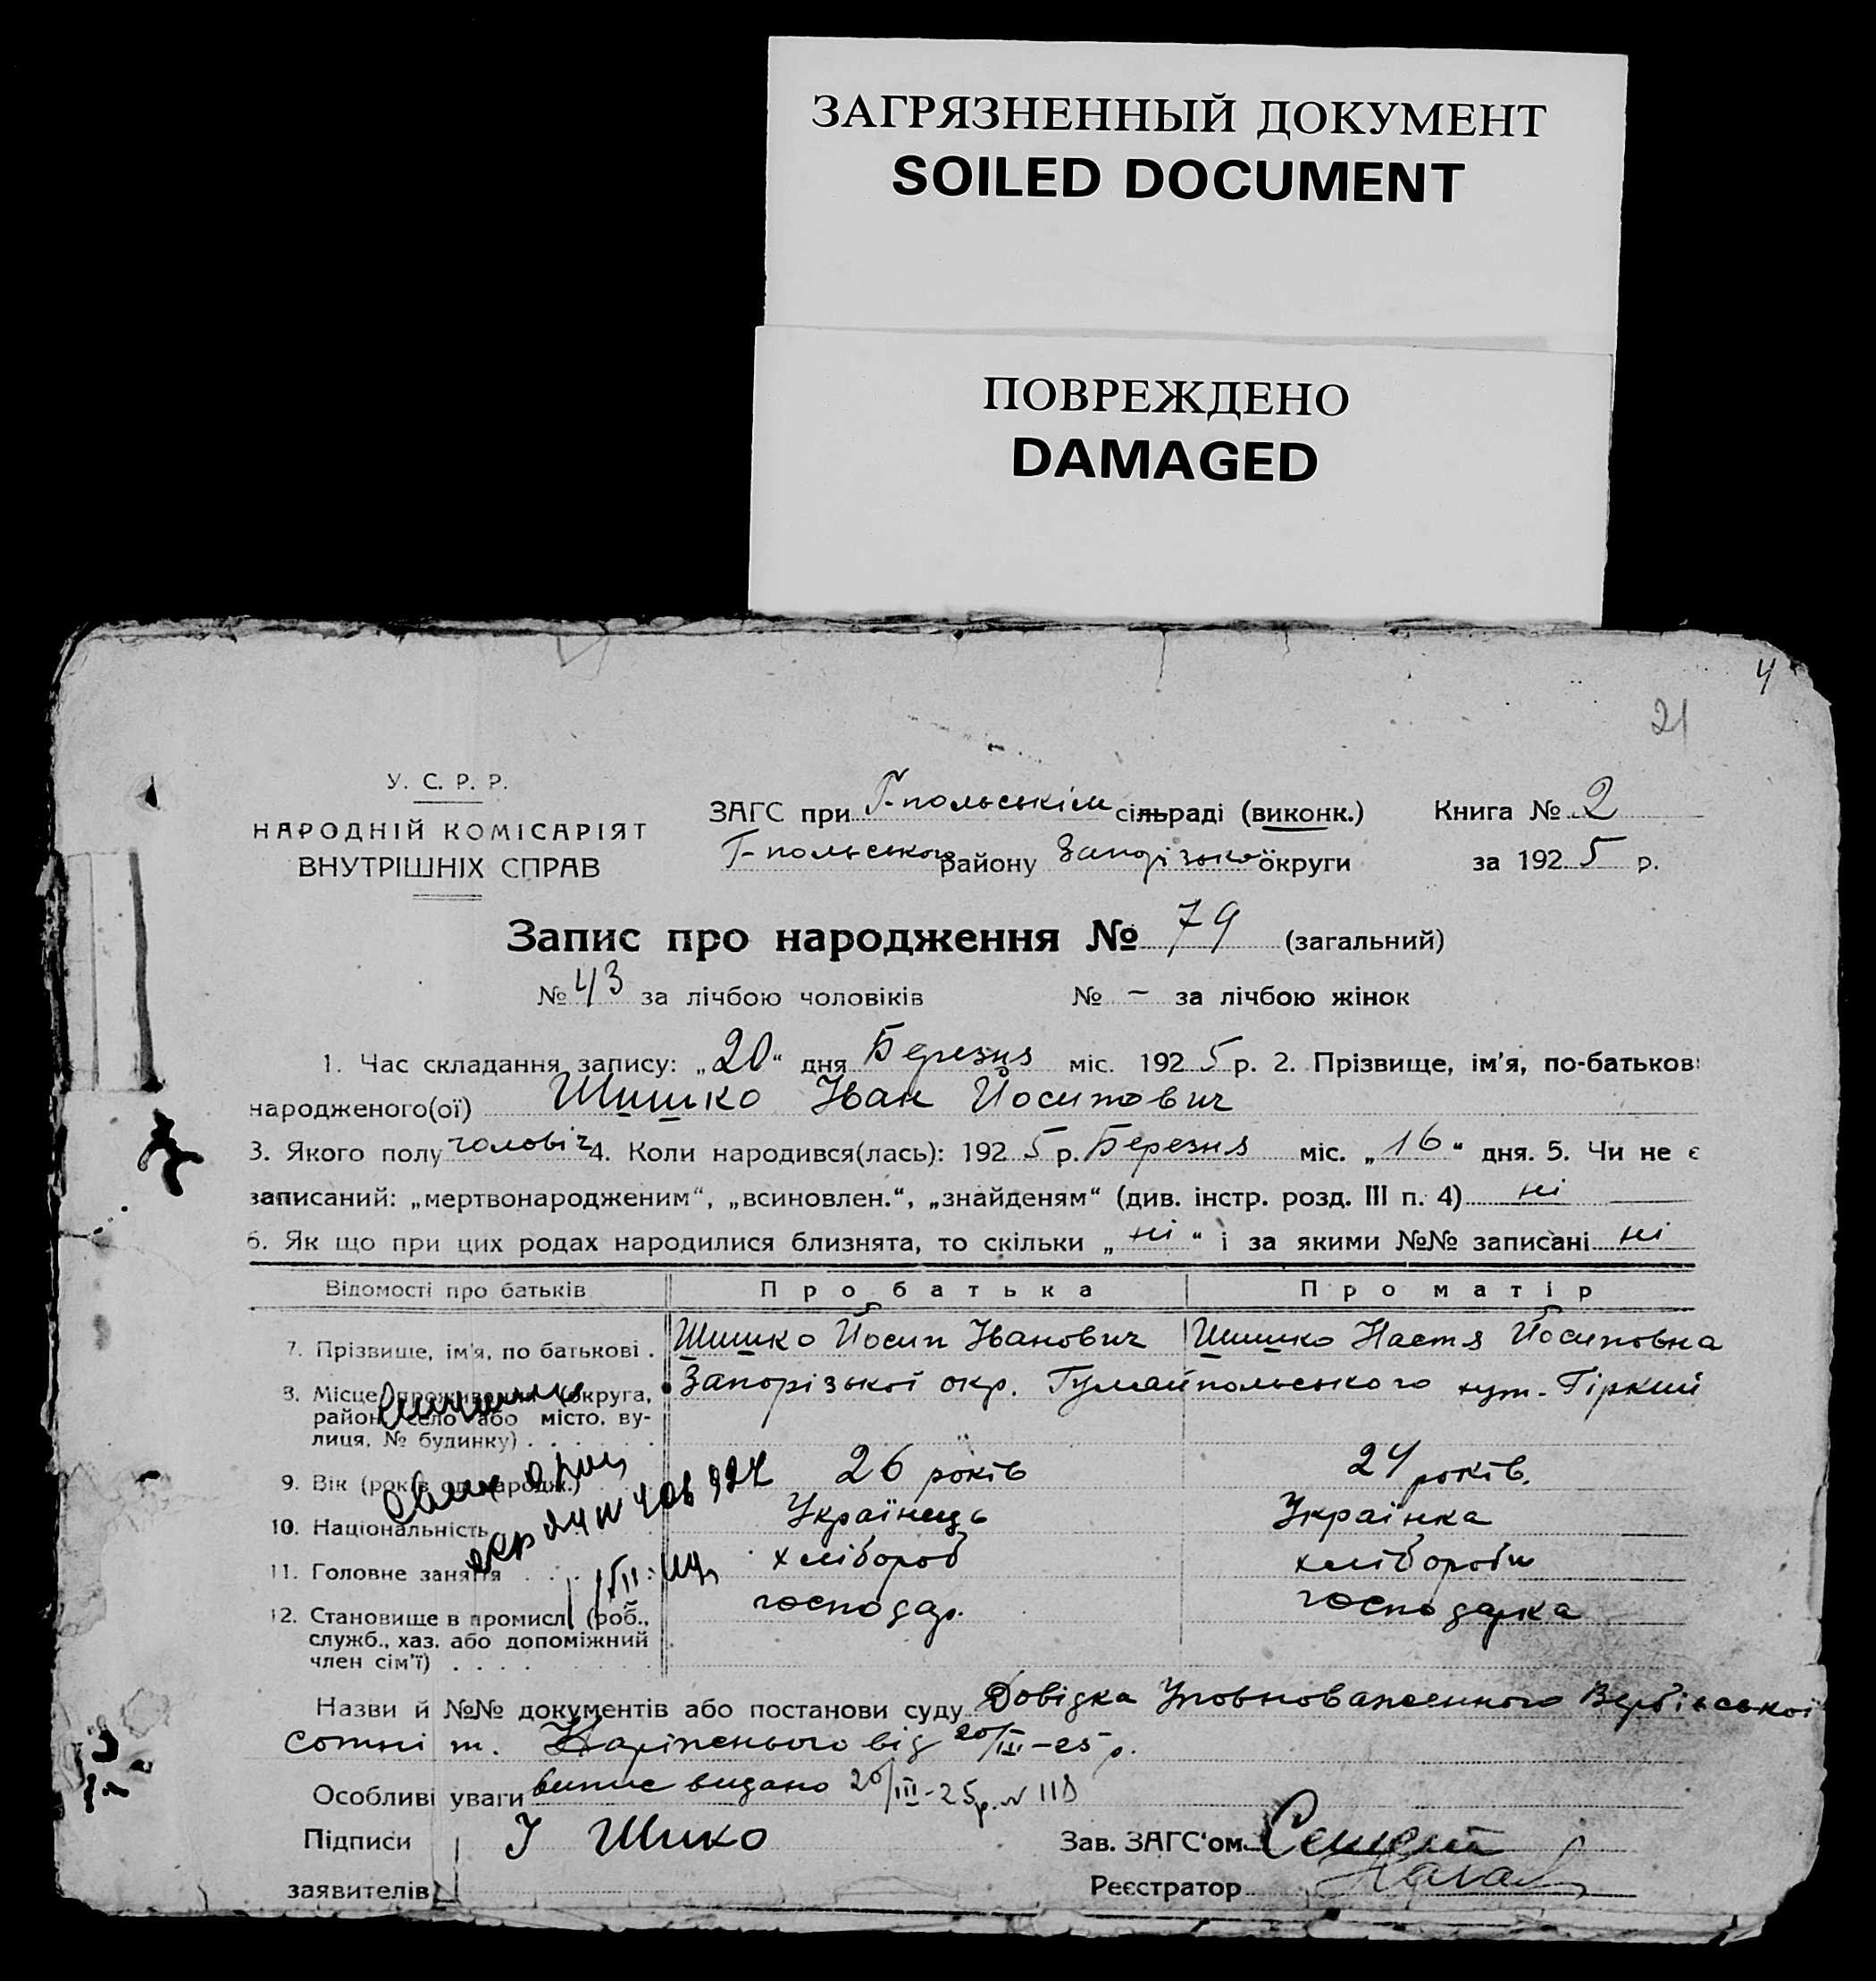 ЗАГРЯЗНЕННЫЙ ДОКУМЕНТ
SOILED DOCUMENT
ПОВРЕЖДЕНО
DAMAGED
4
21
У. С. Р. Р.
НАРОДНІЙ КОМІСАРІЯТ
ВНУТРІШНІХ СПРАВ
ЗАГС при Г-польськім сільраді (виконк.) Книга № 2
Г-польського району Запорізької округи за 1925 р.
Запис про народження № 79 (загальний)
№ 43 за лічбою чоловіків № – за лічбою жінок
1. Час складання запису: „20“ дня Березня міс. 1925 р. 2. Прізвище, ім'я, по-батькові
народженого(ої) Шишко Іван Йосипович
3. Якого полу чоловіч 4. Коли народився(лась): 1925 р. Березня міс. „16“ дня. 5. Чи не є
записаний: „мертвонародженим“, „всиновлен.“, „знайденям“ (див. інстр. розд. III п. 4) ні
6. Як що при цих родах народилися близнята, то скільки „ні“ і за якими №№ записані ні
Відомості про батьків Про батька Про матір
7. Прізвище, ім'я, по батькові . Шишко Йосип Іванович Шишко Настя Йосиповна
8. Місце проживання (округа, Запорізької окр. Гуляйпольського хут. Гіркий
район, село або місто, ву-
лиця, № будинку) . . . . .
9. Вік (років од народж.) 26 років 24 років.
10. Національність Українець Українка
11. Головне заняття . . . хлібороб хлібороби
12. Становище в промислі (роб., господар. господарка
служб., хаз. або допоміжний
член сім'ї) . . . .
Назви й №№ документів або постанови суду Довідка Уповноваженного Вербівської
сотні т. від 20/III–25 р.
Особливі уваги випис видано 20/III-25 р. № 118
Підписи І Шико Зав. ЗАГС'ом
заявителів Реєстратор